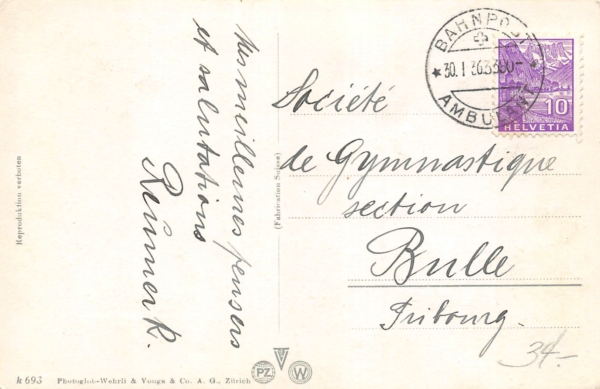 Mes meilleures pensers
et salutations
Rimmer R.
Société
de Gymnastique
section
Bulle
Fribourg.
34.-
BAHNPOST
30.I.36
AMBULANT
10
HELVETIA
Reproduktion verboten
(Fabrication Suisse)
k 693 Photoglob-Wehrli & Vouga & Co. A. G., Zürich
PZ
W